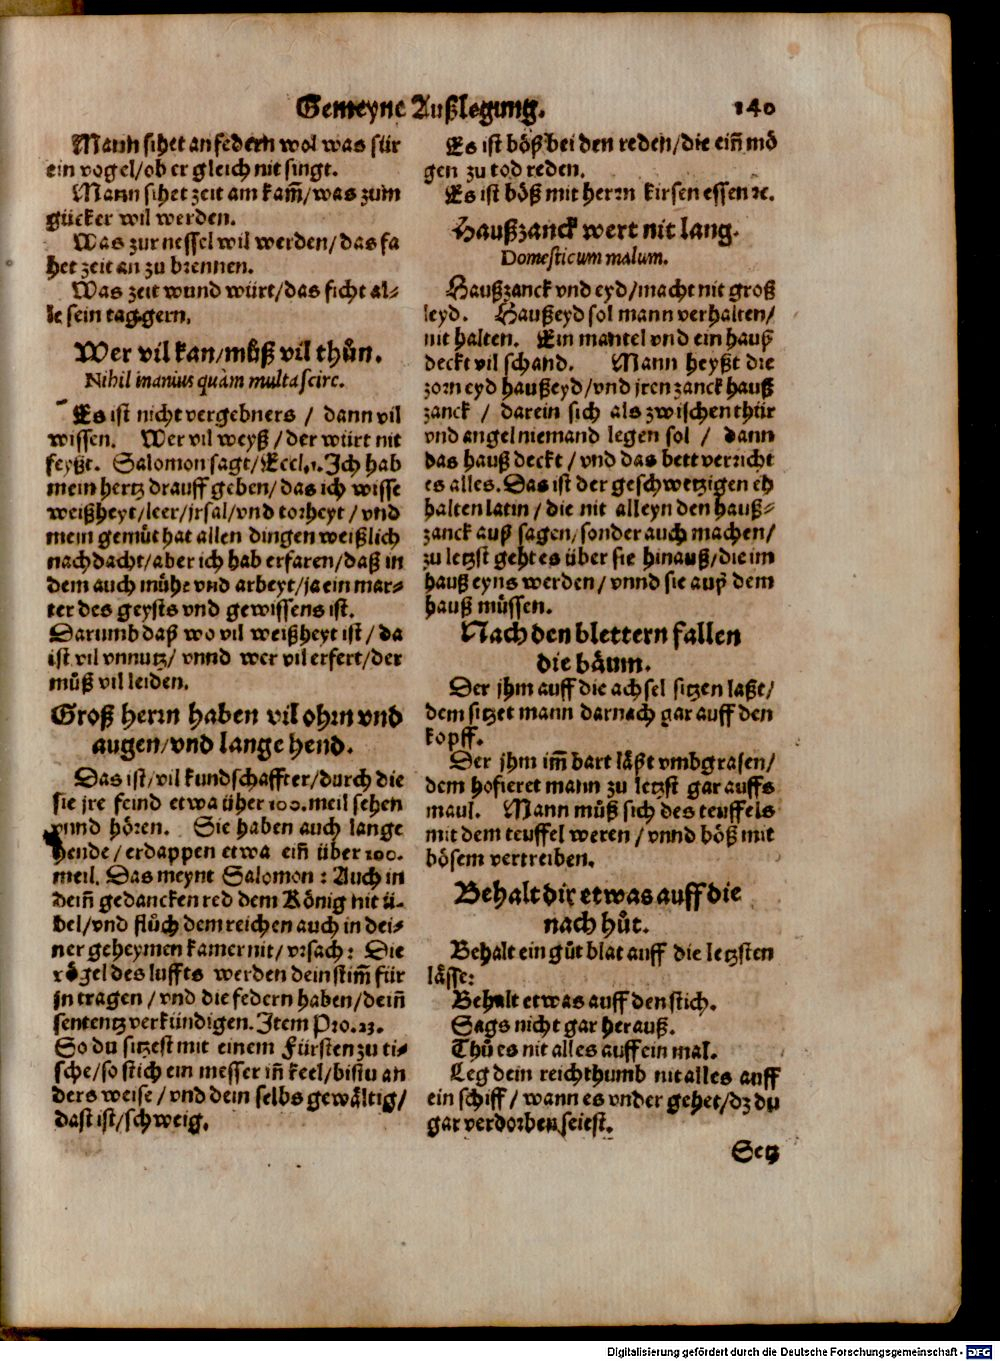 Gemeyne Außlegung. 140
Mann sihet an federn wol was für
ein vogel/ob er gleich nit singt.
Mann sihet zeit am kam̃/was zum
gücker wil werden.
Was zur nessel wil werden/das fa
het zeit an zu brennen.
Was zeit wund würt/das ficht al⸗
le sein tag gern.
Wer vil kan/muͦß vil thuͦn.
Nihil inanius quàm multa scire.
Es ist nicht vergebners / dann vil
wissen. Wer vil weyß / der würt nit
feyßt. Salomon sagt/Eccl.1. Ich hab
mein hertz drauff geben/das ich wisse
weißheyt/leer/jrsal/vnd torheyt / vnd
mein gemuͤt hat allen dingen weißlich
nachdacht/aber ich hab erfaren/daß in
dem auch muͤhe vnd arbeyt/ja ein mar⸗
ter des geysts vnd gewissens ist.
Darumb daß wo vil weißheyt ist / da
ist vil vnnutz/ vnnd wer vil erfert/der
muͦß vil leiden.
Groß herrn haben vil ohrn vnd
augen/vnd lange hend.
Das ist/vil kundschaffter/durch die
sie jre feind etwa über 100. meil sehen
vnnd hören. Sie haben auch lange
hende / erdappen etwa ein̄ über 100.
meil. Das meynt Salomon : Auch in
dein̄ gedancken red dem König nit ü⸗
bel/vnd fluͦch dem reichen auch in dei⸗
ner geheymen kamer nit/ vrsach: Die
vögel des luffts werden dein stim̃ für
jn tragen / vnd die federn haben/dein̄
sententz verkündigen. Item Pro. 23.
So du sitzest mit einem Fürsten zu ti⸗
sche/so stich ein messer in̄ keel/bistu an
ders weise / vnd dein selbs gewältig/
dast ist/schweig.
Es ist böß bei den reden/die ein̄ mö
gen zu tod reden.
Es ist böß mit herrn kirsen essen ꝛc.
Haußzanck wert nit lang.
Domesticum malum.
Haußzanck vnd eyd/macht nit groß
leyd. Haußeyd sol mann verhalten/
nit halten. Ein mantel vnd ein hauß
deckt vil schand. Mann heyßt die
zorneyd haußeyd/vnd jren zanck hauß
zanck / darein sich als zwischen thür
vnd angel niemand legen sol / dann
das hauß deckt / vnd das bett verricht
es alles. Das ist der geschwetzigen eh
halten latin / die nit alleyn den hauß⸗
zanck auß sagen/sonder auch machen/
zu letzst geht es über sie hinauß/die im
hauß eyns werden/ vnnd sie auß dem
hauß müssen.
Nach den blettern fallen
die bäum.
Der jhm auff die achsel sitzen laßt/
dem sitzet mann darnach gar auff den
kopff.
Der jhm im̃ bart läßt vmbgrasen/
dem hofieret mann zu letzst gar auffs
maul. Mann muͦß sich des teuffels
mit dem teuffel weren / vnnd böß mit
bösem vertreiben.
Behalt dir etwas auff die
nach huͦt.
Behalt ein guͦt blat auff die letzsten
lässe:
Behalt etwas auff den stich.
Sags nicht gar herauß.
Thuͦ es nit alles auff ein mal.
Leg dein reichthumb nit alles auff
ein schiff / wann es vnder gehet/dz du
gar verdorben seiest.
Setz
Digitalisierung gefördert durch die Deutsche Forschungsgemeinschaft - DFG